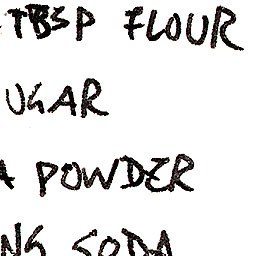 TBSP FLOUR
UGAR
A POWDER
NG SODA